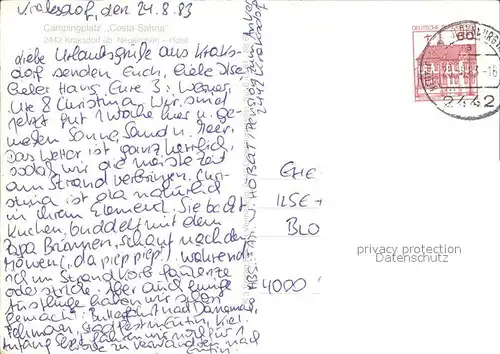 Kraksdorf, den 24.8.83
Campingplatz „Costa Sahna"
2442 Kraksdorf üb. Neukirchen - Holst
Liebe Urlaubsgrüße aus Kraks-
dorf senden Euch, liebe Ilse
lieber Hans, Eure 3: Werner,
Ute & Christina. Wir sind
jetzt gut 1 Woche hier u. ge-
nießen Sonne, Sand u. Meer.
Das Wetter ist ganz herrlich,
sodaß wir die meiste Zeit
am Strand verbringen. Chri-
stina ist da natürlich
in ihrem Element. Sie backt
Kuchen, buddelt mit dem
Papa Brunnen, schaut nach den
Möwen (da piep piep), während
ich im Strandkorb faulenze
oder stricke. Aber auch einige
Ausflüge haben wir schon
gemacht: Butterfahrt nach Dänemark,
Fehmarn, Kiel.
Anfang fahren wir für 1
zu Verwandten nach
Eutin.
2442 Kraksdorf
DEUTSCHE BUNDESPOST
60
2442
EHE
ILSE +
BLO
4000
privacy protection
Datenschutz